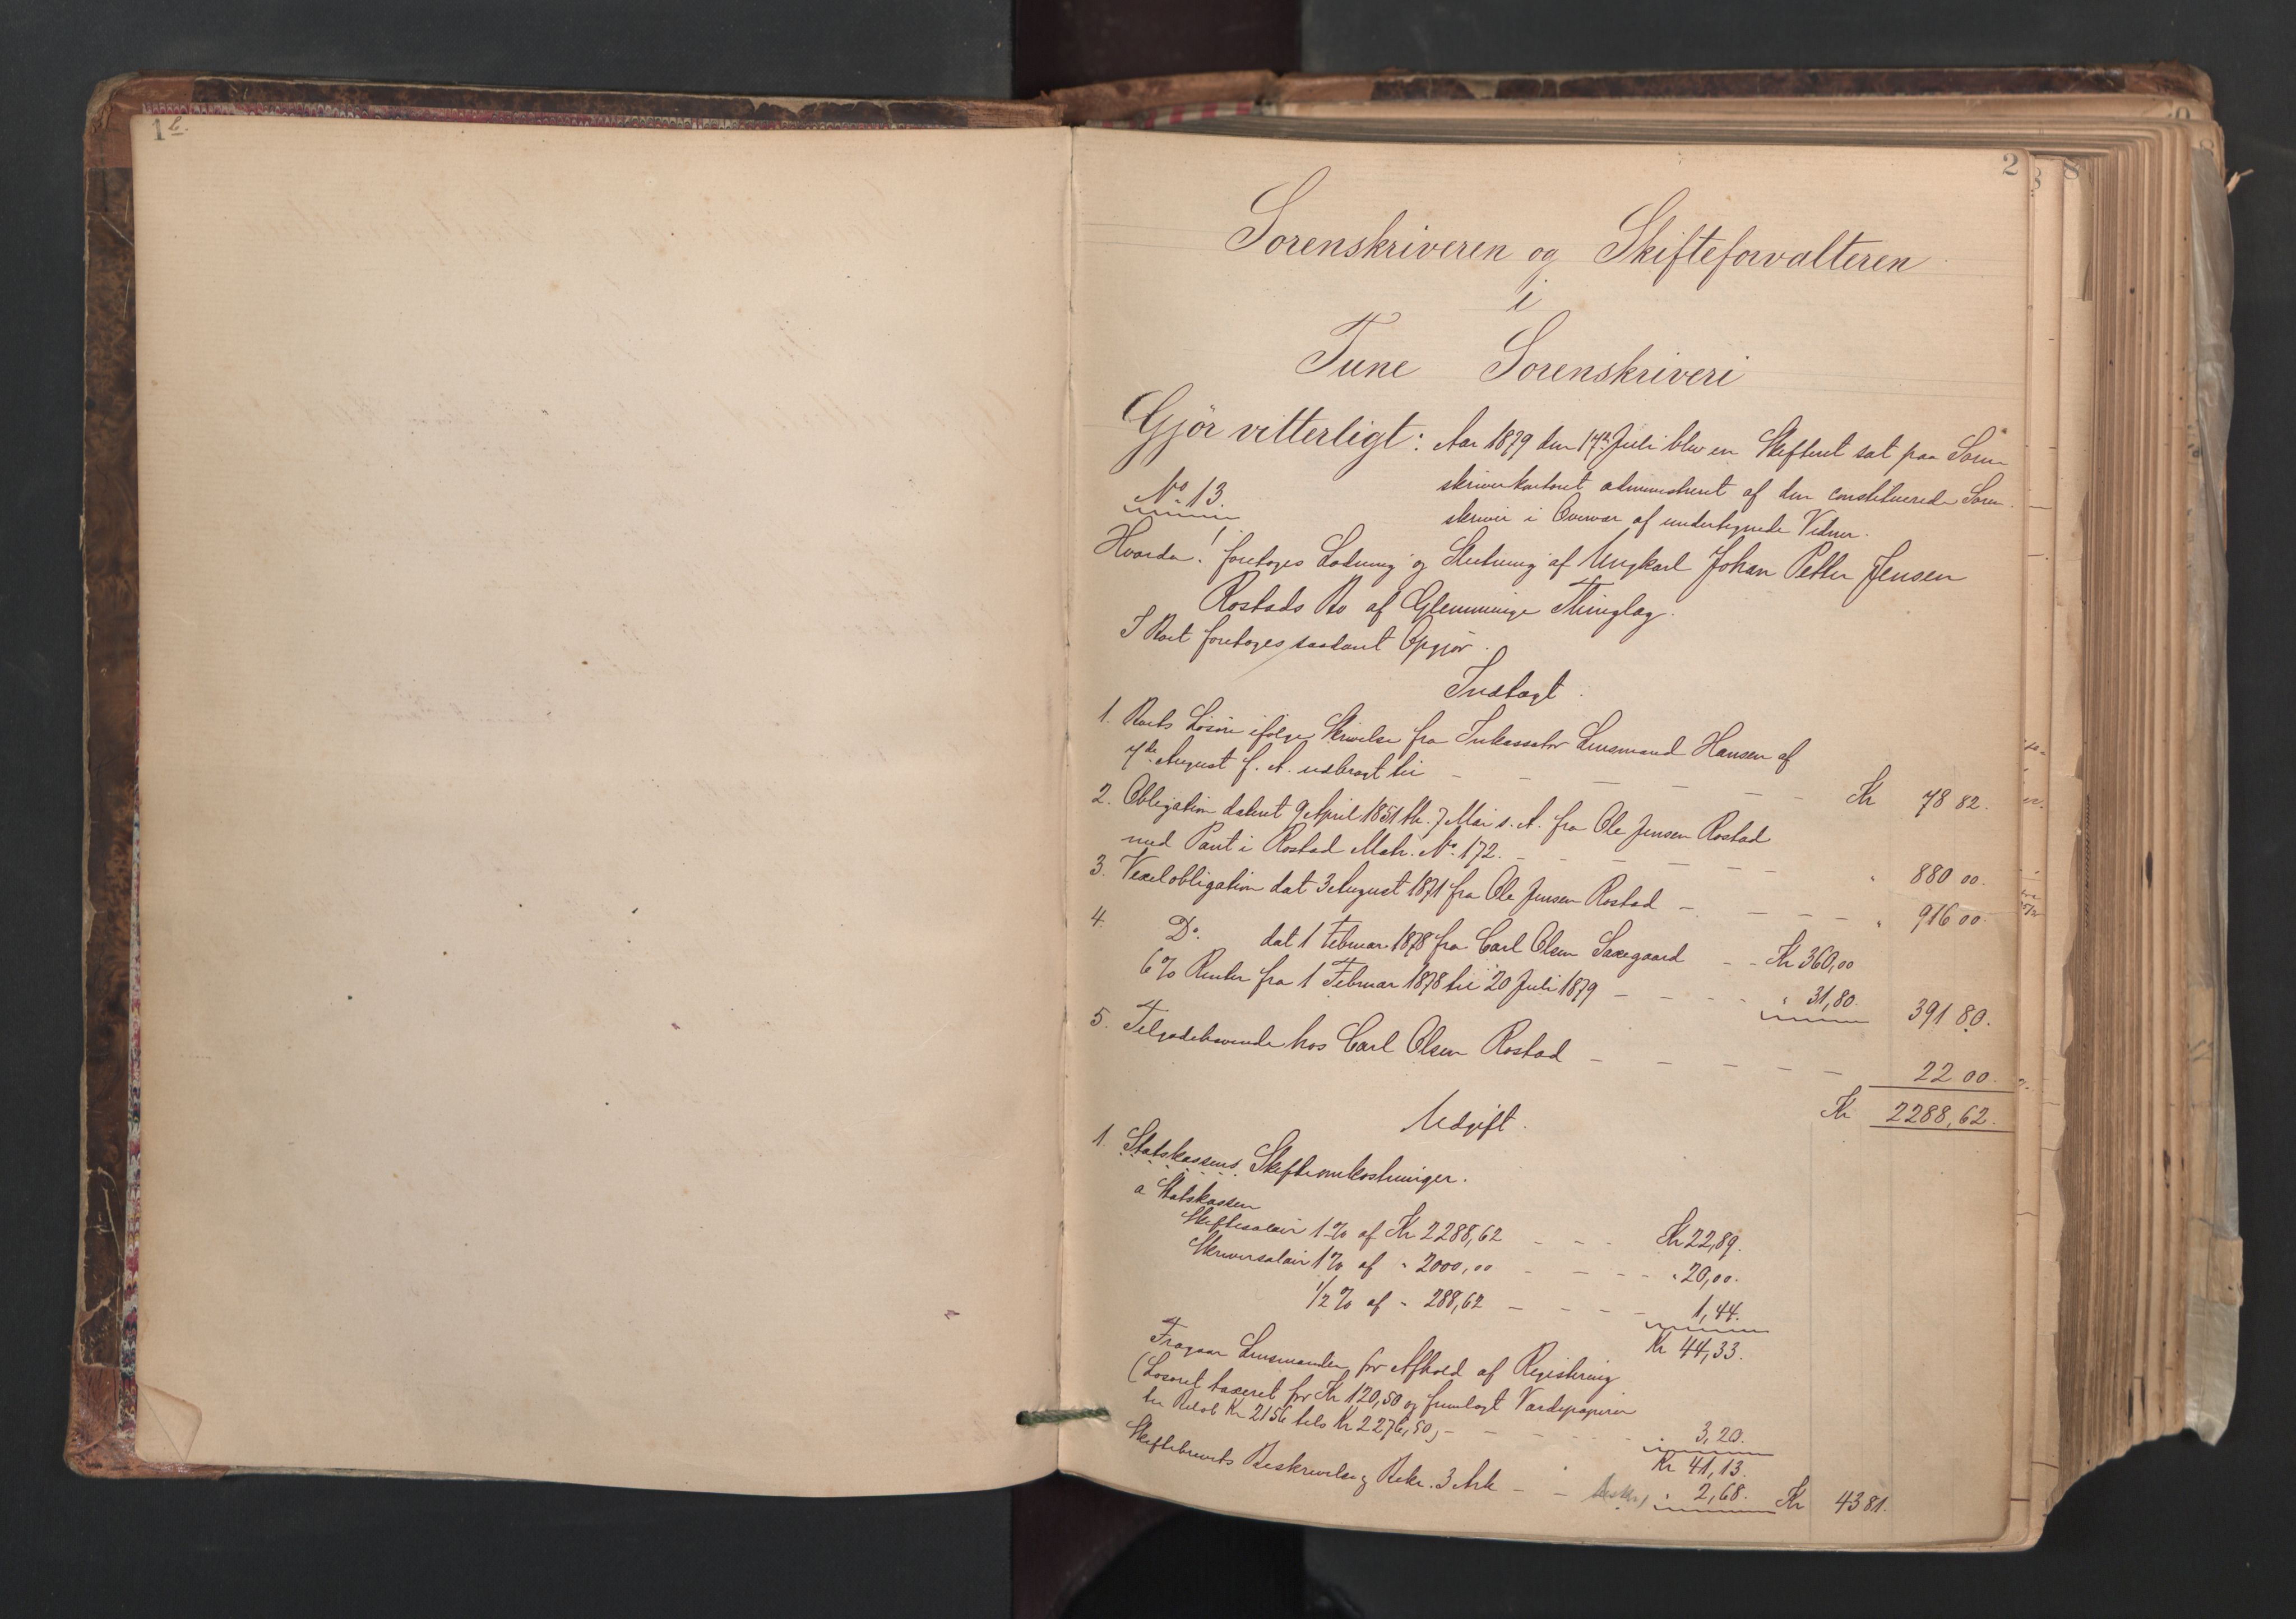 1b.
2
Sorenskriveren og Skifteforvalteren
i
Tune Sorenskriveri
Gjör vitterligt: Aar 1879 den 17de Juli blev en Skifteret sat paa Soren
skriverkontoret administreret af den constituerede Soren-
skriver i Overvær af undertegnede Vidner.
No 13.
Hvorda! foretoges Lodning og Slutning af Ungkarl Johan Petter Jensen
Rostads Bo af Glemminge Thinglag.
I Boet foretoges saadant Opgjør.
Indtægt.
1. Boets Løsøre ifølge Skrivelse fra Inkassator Lensmand Hansen af
7de August f. A. udbragt til – – – – – Kr 78 82.
2. Obligation dateret 9 April 1851 th. 7 Mai s. A. fra Ole Jensen Rostad
med Pant i Rostad Matr. No 172. – – – – – " 880 00.
3. Vexelobligation dat 3 August 1871 fra Ole Jensen Rostad – – – – " 916 00.
4. Do. dat 1 Februar 1878 fra Carl Olsen Saxegaard – – Kr 360,00
6% Renter fra 1 Februar 1878 til 20 Juli 1879 – – – – " 31,80. 391 80.
5. Tilgodehavende hos Carl Olsen Rostad – – – – – – 22 00.
Kr 2288,62.
Udgift.
1. Statskassens Skifteomkostninger.
a Statskassen
Skiftesalair 1% af Kr 2288,62 – – – Kr 22,89.
Skriversalair 1% af " 2000,00 – – – – " 20,00.
1/2% af " 288,62 – – – – 1,44.
Kr 44,33.
Fragaar Lensmanden for Afhold af Registrering
(Løsøret taxeret for Kr 120,50 og fremlagt Værdipapirer
til Beløb Kr 2156 tils Kr 2276,50,– – – – – 3,20.
Kr 41,13.
Skiftebrevets Beskrivelse og Bekr. 3 Ark – – " 2,68. Kr 43 81.